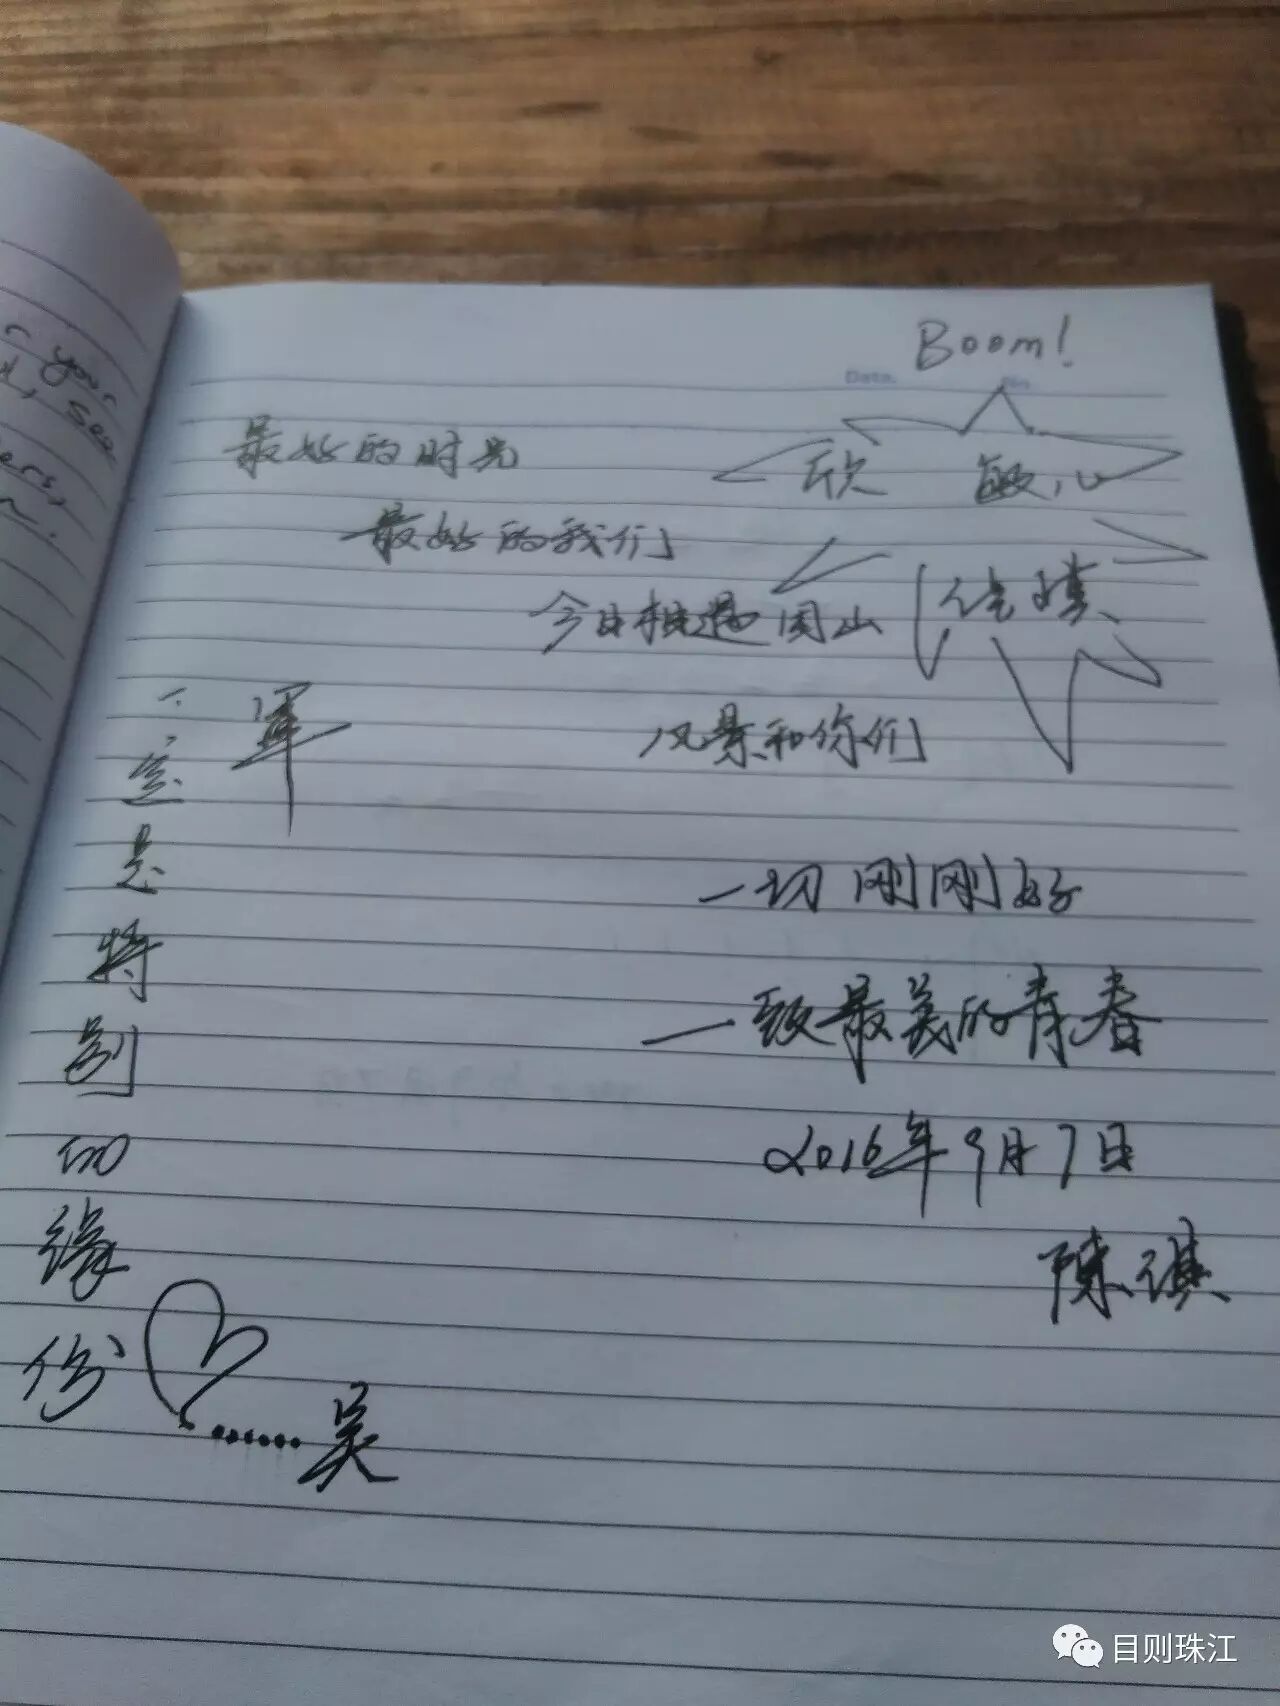 Boom!
Date.
No.
最好的时光
欣 敏心
最好的我们
佳琪
今日相遇周山
风景和你们
一切刚刚好
一致最美的青春
2016年9月7日
陈琪
军
一定是特别的缘份
......吴
your
see
目则珠江